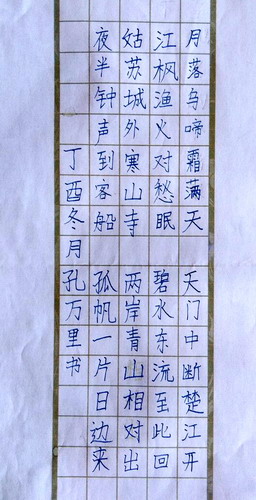 月落乌啼霜满天
江枫渔火对愁眠
姑苏城外寒山寺
夜半钟声到客船
天门中断楚江开
碧水东流至此回
两岸青山相对出
孤帆一片日边来
丁酉冬月 孔万里书